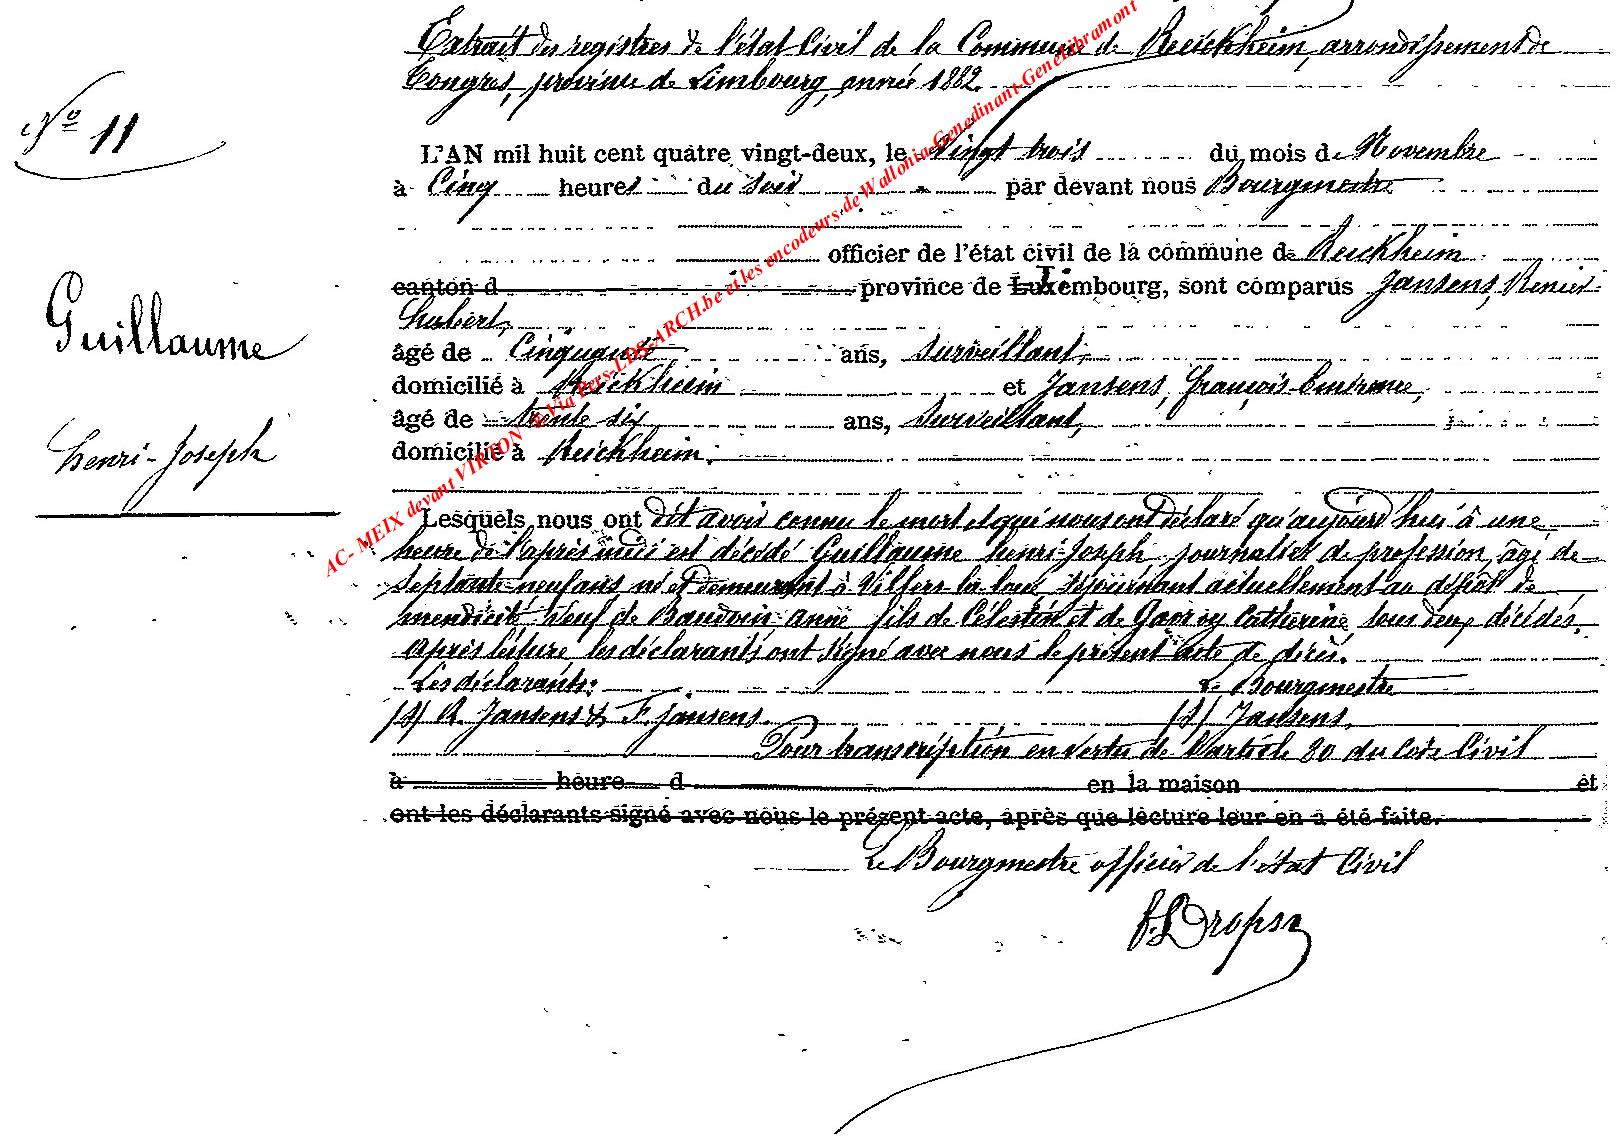 Extrait des registres de l'état Civil de la Commune de Reickheim, arrondissement de
Tongres, province de Limbourg, année 1882.
N° 11
L'AN mil huit cent quatre vingt-deux, le Vingt trois du mois de Novembre
à Cinq heures du soir par devant nous Bourgmestre
officier de l'état civil de la commune de Reickheim
canton d province de Luxembourg, sont comparus Jansens, Renier
Hubert,
âgé de Cinquante ans, Surveillant,
domicilié à Reickheim et Jansens, françois
âgé de trente six ans, Surveillant,
domicilié à Reickheim.
Guillaume
henri-Joseph
Lesquels nous ont dit avoir connu le mort et qui nous ont déclaré qu'aujourd'hui à une
heure de l'après midi est décédé Guillaume henri-Joseph, journalier de profession, âgé de
Septante neuf ans né et demeurant à Villers la loue, séjournant actuellement au dépôt de
mendicité, Veuf de Baudouin, anne fils de Célestin et de Catherine, tous deux décédés.
après lecture, les déclarants ont signé avec nous le présent acte de décès.
Les déclarants: Le Bourgmestre
(s) R. Jansens & F. Jansens. (s) Jansens.
Pour transcription en vertu de l'article 80 du Code Civil
à heure d en la maison et
ont les déclarants signé avec nous le présent acte, après que lecture leur en a été faite.
Le Bourgmestre officier de l'état Civil
f. L Dropsy
AC- MEIX devant VIRTON & Via Pers-LDS-ARCH.be et les encodeurs de Wallonia-Genedinant-Genelibramont